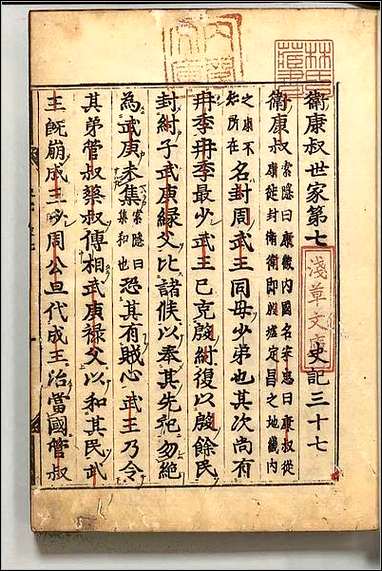 衛康叔世家第七 史記三十七
衛康叔 索隱曰康畿內國名宋忠曰康叔從
康徙封衛衛即殷墟定昌之地畿內
之康不
知所在 名封周武王同母少弟也其次尚有
冉季冉季最少武王已克殷紂復以殷餘民
封紂子武庚祿父比諸侯以奉其先祀勿絕
為武庚未集 索隱曰
集和也 恐其有賊心武王乃令
其弟管叔蔡叔傅相武庚祿父以和其民武
王既崩成王少周公旦代成王治當國管叔
淺草文庫
林氏藏書